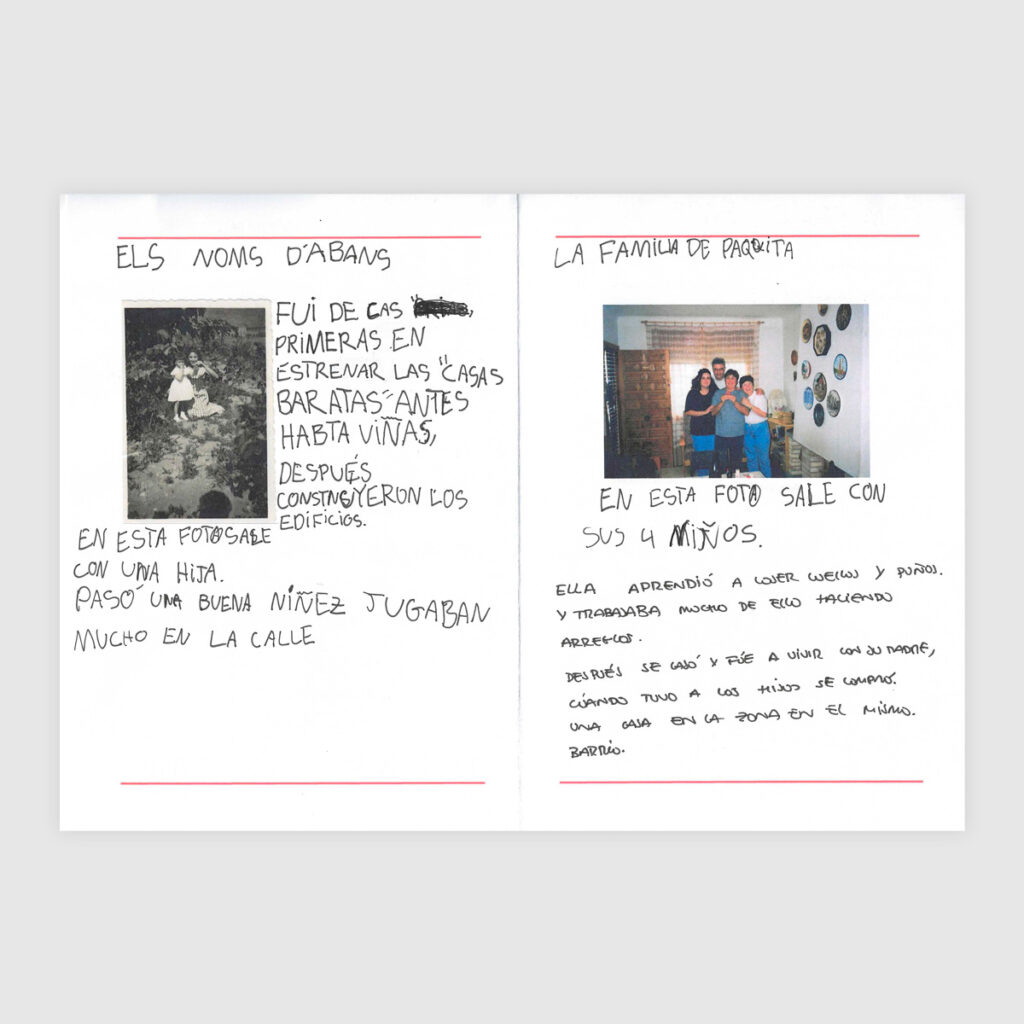 ELS NOMS D'ABANS
FUI DE CAS
PRIMERAS EN
ESTRENAR LAS "CASAS
BARATAS" ANTES
HABTA VIÑAS,
DESPUÉS
CONSTRUYERON LOS
EDIFICIOS.
EN ESTA FOTO SALE
CON UNA HIJA.
PASÓ UNA BUENA NIÑEZ JUGABAN
MUCHO EN LA CALLE
LA FAMILIA DE PAQUITA
EN ESTA FOTO SALE CON
SUS 4 NIÑOS.
ELLA APRENDIÓ A COSER CUELLOS Y PUÑOS.
Y TRABAJABA MUCHO DE ELLO HACIENDO
ARREGLOS.
DESPUÉS SE CASÓ Y FÚE A VIVIR CON SU MADRE,
CÚANDO TUVO A LOS HIJOS SE COMPRÓ.
UNA CASA EN LA ZONA EN EL MISMO.
BARRIO.